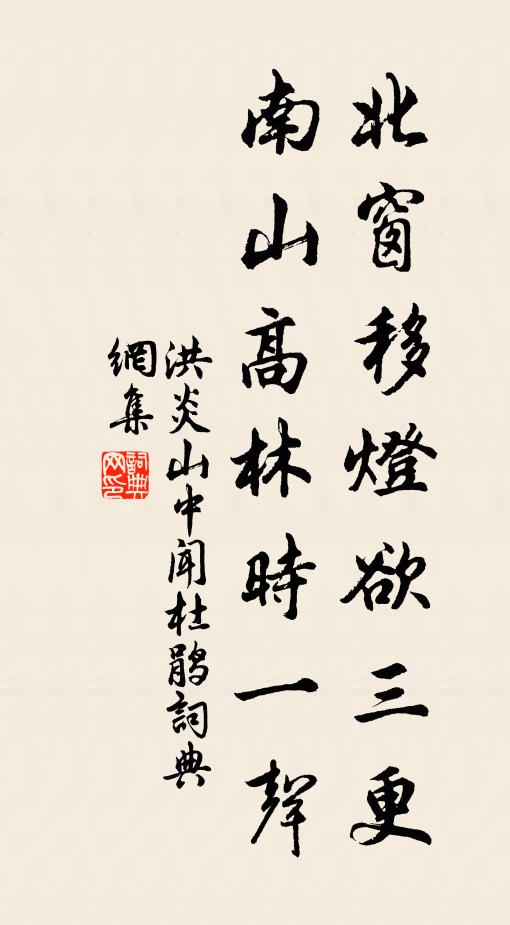 北窗移燈欲三更
南山高林時一聲
洪炎山中闻杜鹃詞典
網集
詞典网印